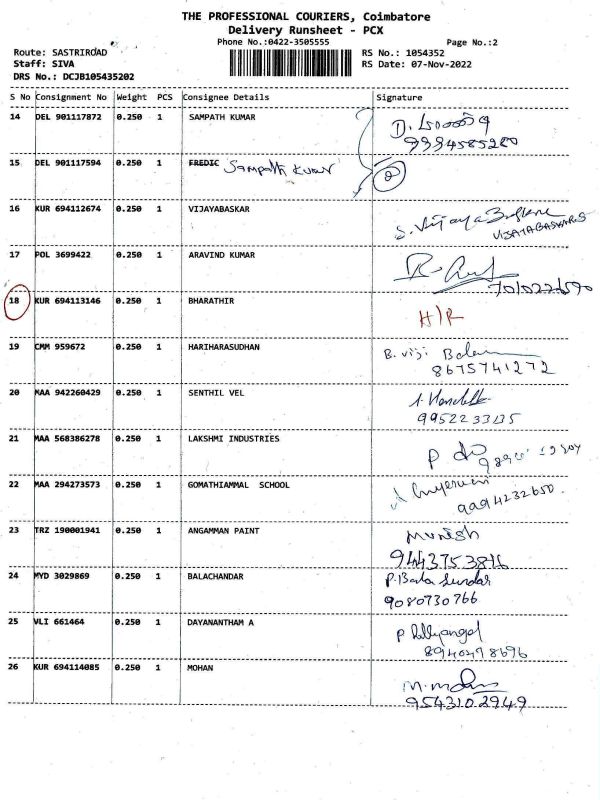 THE PROFESSIONAL COURIERS, Coimbatore
Delivery Runsheet - PCX
Phone No.:0422-3505555 Page No.:2
Route: SASTRIROAD RS No.: 1054352
Staff: SIVA RS Date: 07-Nov-2022
DRS No.: DCJB105435202
S No Consignment No Weight PCS Consignee Details Signature
14 DEL 901117872 0.250 1 SAMPATH KUMAR
9994585280
15 DEL 901117594 0.250 1 FREDIC Sampath Kumar 2
16 KUR 694112674 0.250 1 VIJAYABASKAR S. Vijaya Baskar
VIJAYABASKAR.S
17 POL 3699422 0.250 1 ARAVIND KUMAR
7010226590
18 KUR 694113146 0.250 1 BHARATHIR H/R
19 CMM 959672 0.250 1 HARIHARASUDHAN B. Viji
8675741272
20 MAA 942260429 0.250 1 SENTHIL VEL
9952233135
21 MAA 568386278 0.250 1 LAKSHMI INDUSTRIES
22 MAA 294273573 0.250 1 GOMATHIAMMAL SCHOOL
9994232650.
23 TRZ 190001941 0.250 1 ANGAMMAN PAINT Munish
9443753816
24 MYD 3029869 0.250 1 BALACHANDAR P. Bala Sundar
9080730766
25 VLI 661464 0.250 1 DAYANANTHAM A
8940498696
26 KUR 694114085 0.250 1 MOHAN M. Mohan
9543102949